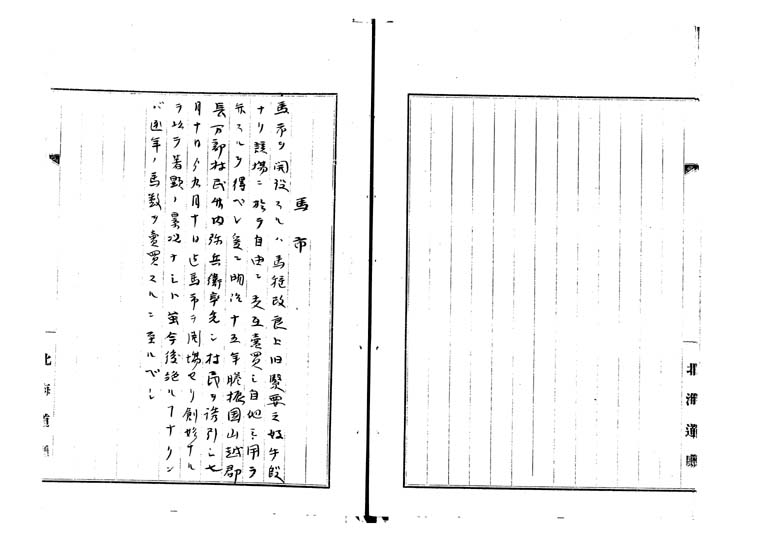 北海道廳
馬市
馬市ヲ開設スルハ馬種改良上旧緊要之
ナリ該場ニ於テ自由ニ交互賣買シ自他ニ用ヲ
スルヲ得ベシ爰ニ明治十五年膽振国山越郡
長万部村民竹内弥兵衛率先シ村民ヲ誘引シ七
月十日ヨリ九月十日迄馬市ヲ開場セリ創始ナル
ヲ以テ著顕ノ景况ナシト虽今後絶ルナクン
バ逐年ノ馬数ヲ賣買スルニ至ルベシ
北海道